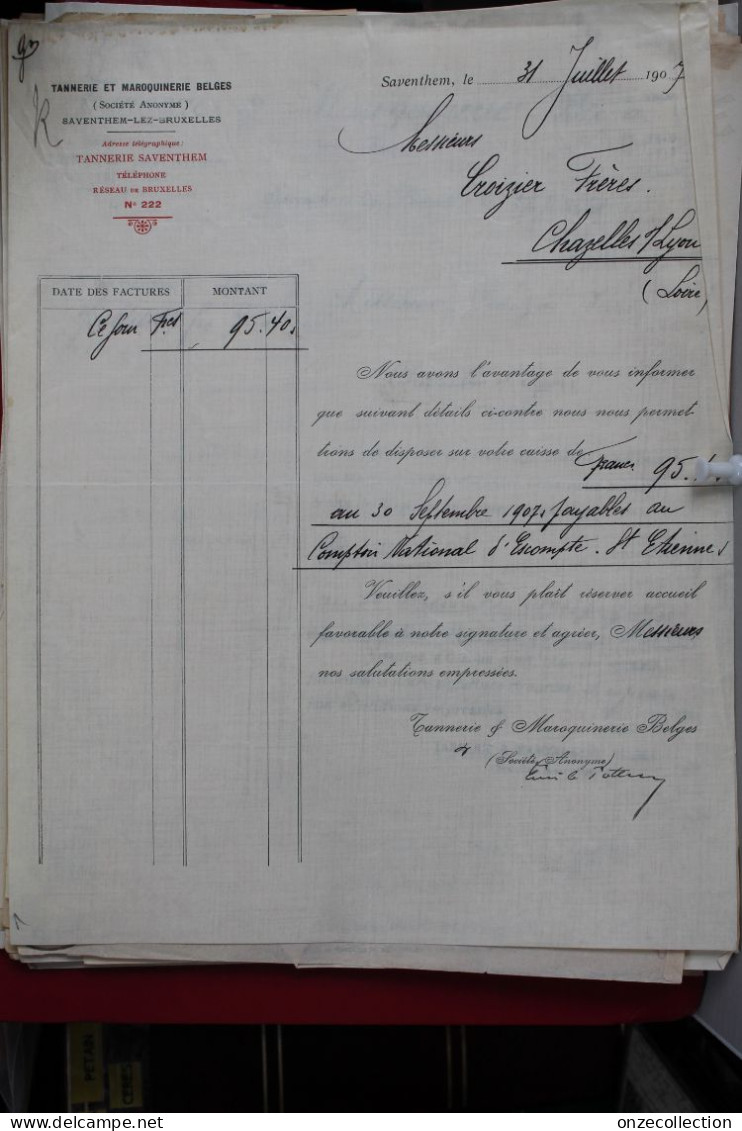 TANNERIE ET MAROQUINERIE BELGES
(SOCIÉTÉ ANONYME)
SAVENTHEM-LEZ-BRUXELLES
Adresse télégraphique:
TANNERIE SAVENTHEM
TÉLÉPHONE
RÉSEAU DE BRUXELLES
N° 222
Saventhem, le 31 Juillet 1907
Messieurs
Croizier Frères.
Chazelles s/Lyon
(Loire)
DATE DES FACTURES MONTANT
Ce jour Frcs 95.40
Nous avons l'avantage de vous informer
que suivant détails ci-contre nous nous permet-
tions de disposer sur votre caisse de Francs 95.
au 30 Septembre 1907, payables au
Comptoir National d'Escompte. St Etienne
Veuillez, s'il vous plaît réserver accueil
favorable à notre signature et agréer, Messieurs
nos salutations empressées.
Tannerie & Maroquinerie Belges
(Société Anonyme)
PETAIN
CERES
delcampe.net
onzecollection